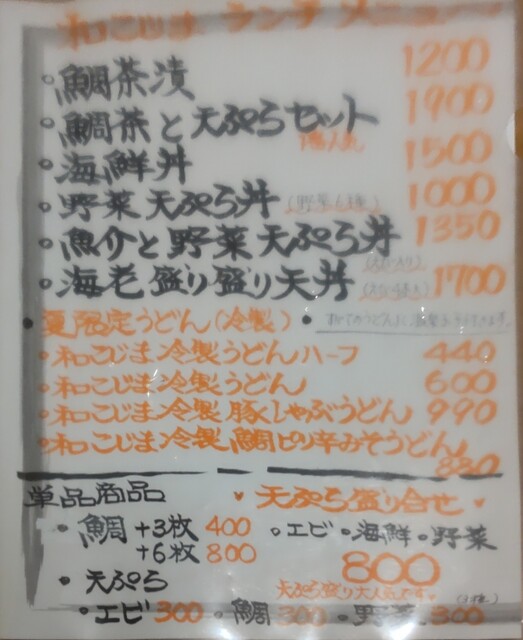 和こじま ランチメニュー
・鯛茶漬 1200
・鯛茶と天ぷらセット 1900
1番人気
・海鮮丼 1500
・野菜天ぷら丼 (野菜6種) 1000
・魚介と野菜天ぷら丼 1350
・海老盛り盛り天丼 1700
・夏限定うどん(冷製)・
・和こじま冷製うどんハーフ 440
・和こじま冷製うどん 600
・和こじま冷製豚しゃぶうどん 990
・和こじま冷製鯛ピリ辛みそうどん
880
単品商品 ♥天ぷら盛り合せ♥
・鯛 +3枚 400 ・エビ・海鮮・野菜
+6枚 800 800
・天ぷら 天ぷら盛り大人気です♥
・エビ300 ・鯛300 ・野菜300